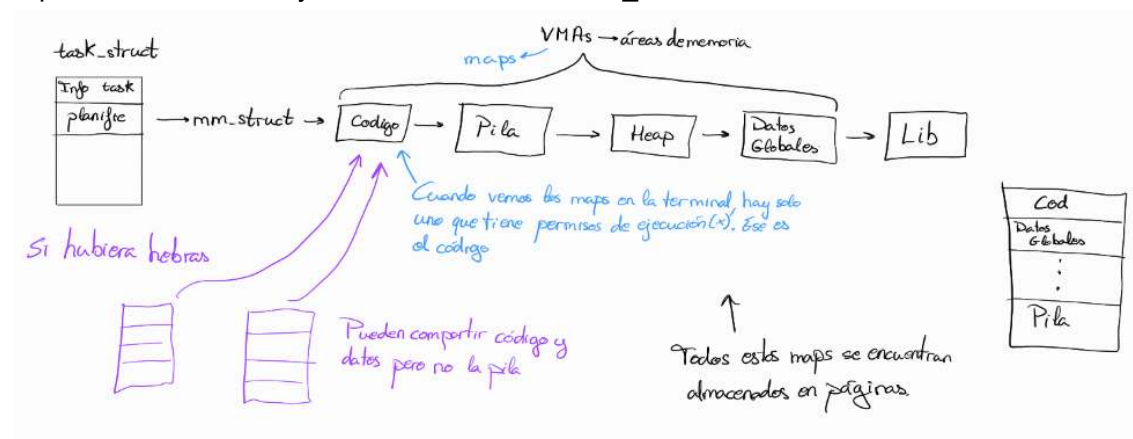 VMAs → áreas de memoria
maps
task_struct
Info task
planific
→ mm_struct →
Codigo
Pila
Heap
Datos
Globales
Lib
Cuando vemos los maps en la terminal, hay solo
uno que tiene permisos de ejecución (x). Ese es
el código
Si hubiera hebras
Pueden compartir código y
datos pero no la pila
Todos estos maps se encuentran
almacenados en páginas.
Cod
Datos
Globales
Pila